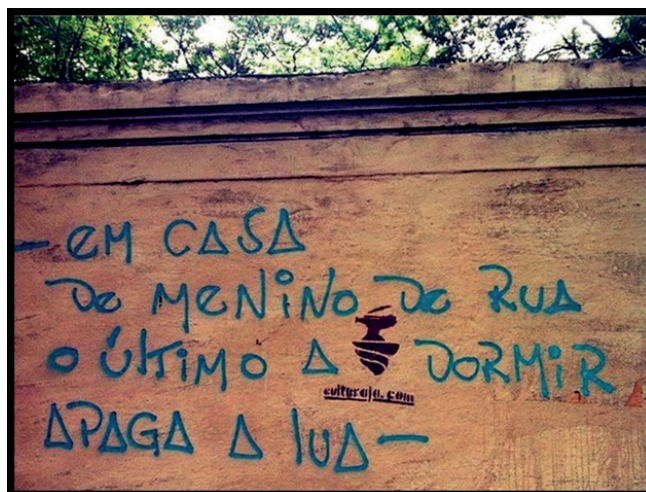 — EM CASA
DE MENINO DE RUA
O ÚLTIMO A DORMIR
culturaja.com
APAGA A LUA —